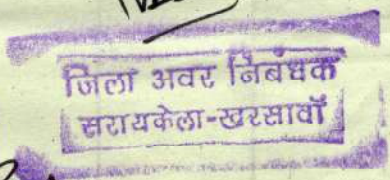 जिला अवर निबंधक
सरायकेला-खरसावाँ